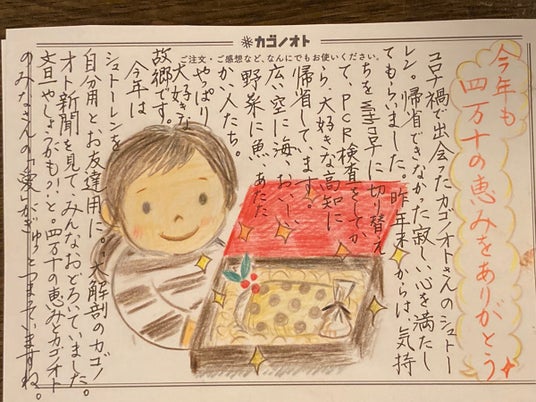 カゴノオト
ご注文・ご感想など、なんにでもお使いください。
今年も
四万十の恵みをありがとう
コロナ禍で出会ったカゴノオトさんのシュトー
レン。帰省できなかった寂しい心を満たし
てもらいました。昨年末からは、気持
ちを早々に切り替え
て、PCR検査をしてか
ら、大好きな高知に
帰省しています。
広い空に海、おいしい
野菜に魚、あたた
かい人たち。
やっぱり
大好きな
故郷です。
今年は
シュトーレンを
自分用と、お友達用に。大解剖のカゴノ
オト新聞を見て、みんなおどろいていました。
文旦やしょうがも?!と。四万十の恵みとカゴノオト
のみなさんの愛がぎゅっとつまっていますね。